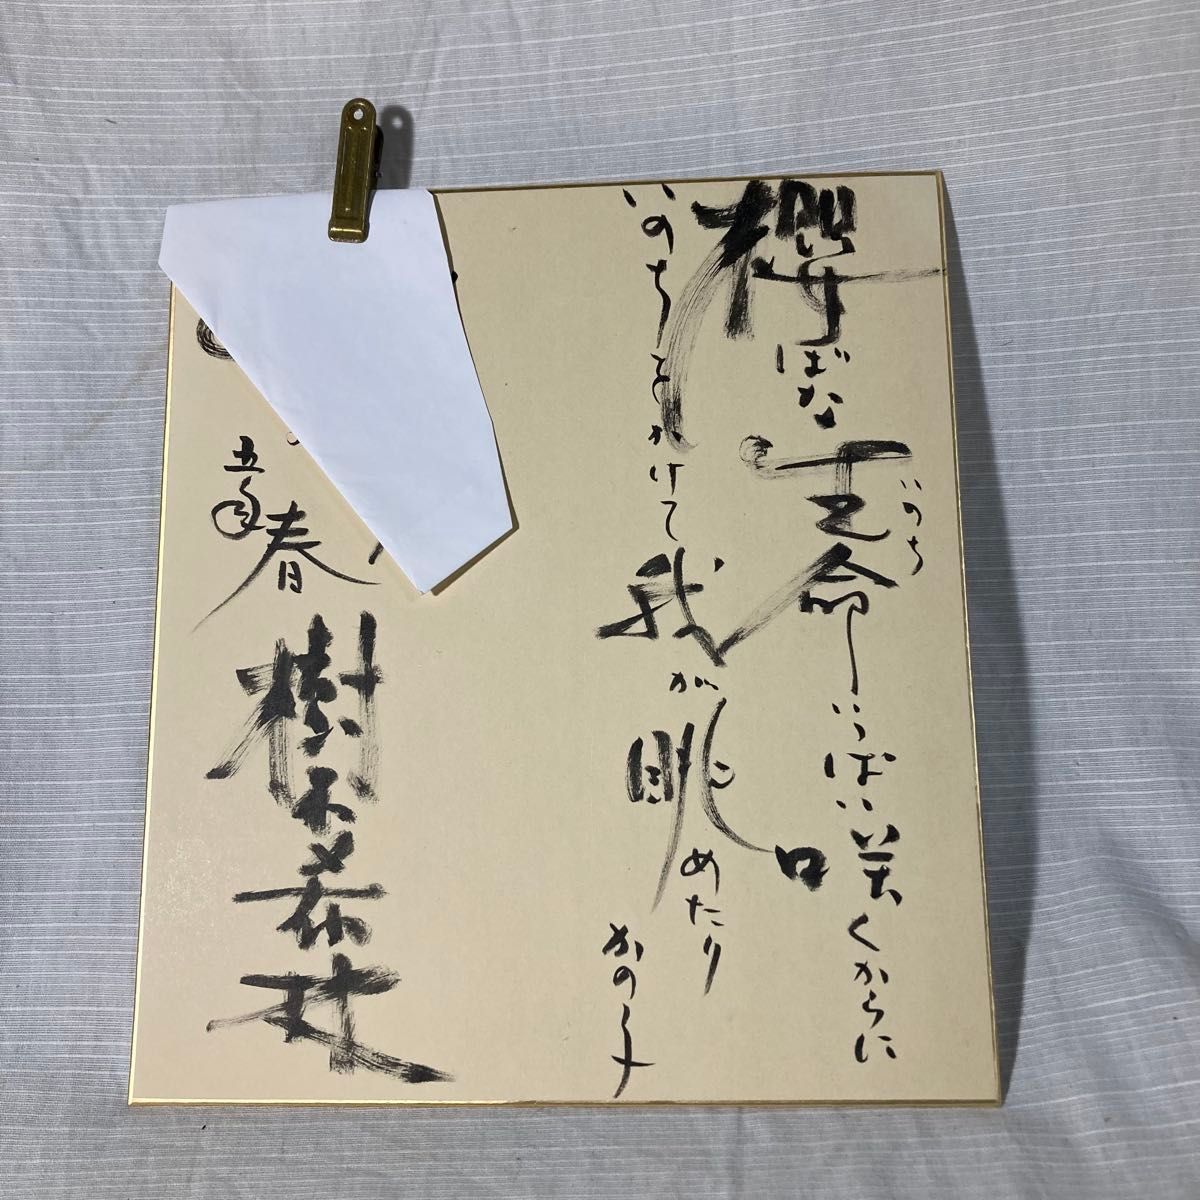 櫻ばな生命いっぱい咲くからに
いのち
いのちをかけて我が眺めたり
かの子
五年春
樹木希林